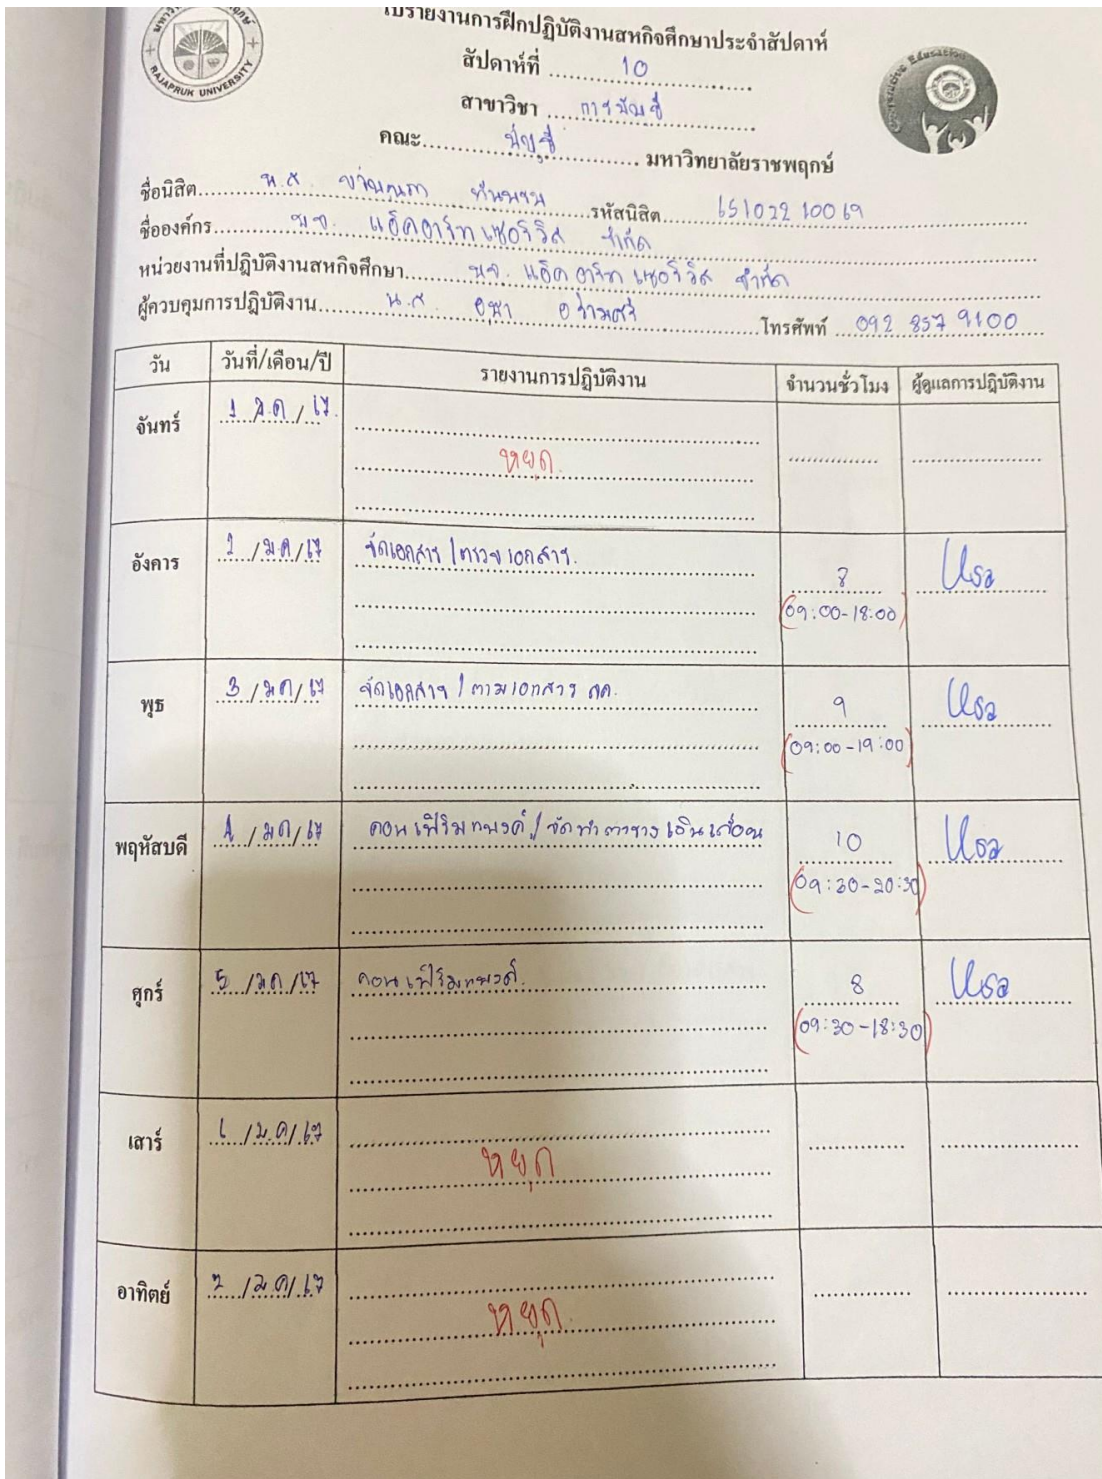 ใบรายงานการฝึกปฏิบัติงานสหกิจศึกษาประจำสัปดาห์
สัปดาห์ที่ 10
สาขาวิชา การบัญชี
คณะ บัญชี มหาวิทยาลัยราชพฤกษ์
RAJAPRUK UNIVERSITY
Cooperative Education
ชื่อนิสิต น.ส. รหัสนิสิต 65102210069
ชื่อองค์กร บจ. แอ็คอาร์ท เซอร์วิส จำกัด
หน่วยงานที่ปฏิบัติงานสหกิจศึกษา บจ. แอ็คอาร์ท เซอร์วิส จำกัด
ผู้ควบคุมการปฏิบัติงาน น.ส. อุษา โทรศัพท์ 092 857 9100
วัน วันที่/เดือน/ปี รายงานการปฏิบัติงาน จำนวนชั่วโมง ผู้ดูแลการปฏิบัติงาน
จันทร์ 1 ม.ค / 67. หยุด.
อังคาร 2 / ม.ค / 67 จัดเอกสาร / ตรวจเอกสาร. 8
(09:00-18:00)
พุธ 3 / ม.ค / 67 จัดเอกสาร / ตามเอกสาร ลค. 9
(09:00-19:00)
พฤหัสบดี 4 / ม.ค / 67 คอนเฟิร์มแบงค์ / จัดทำตารางเงินเดือน 10
(09:30-20:30)
ศุกร์ 5 / ม.ค / 67 คอนเฟิร์มแบงค์. 8
(09:30-18:30)
เสาร์ 6 / ม.ค / 67 หยุด
อาทิตย์ 7 / ม.ค / 67 หยุด.